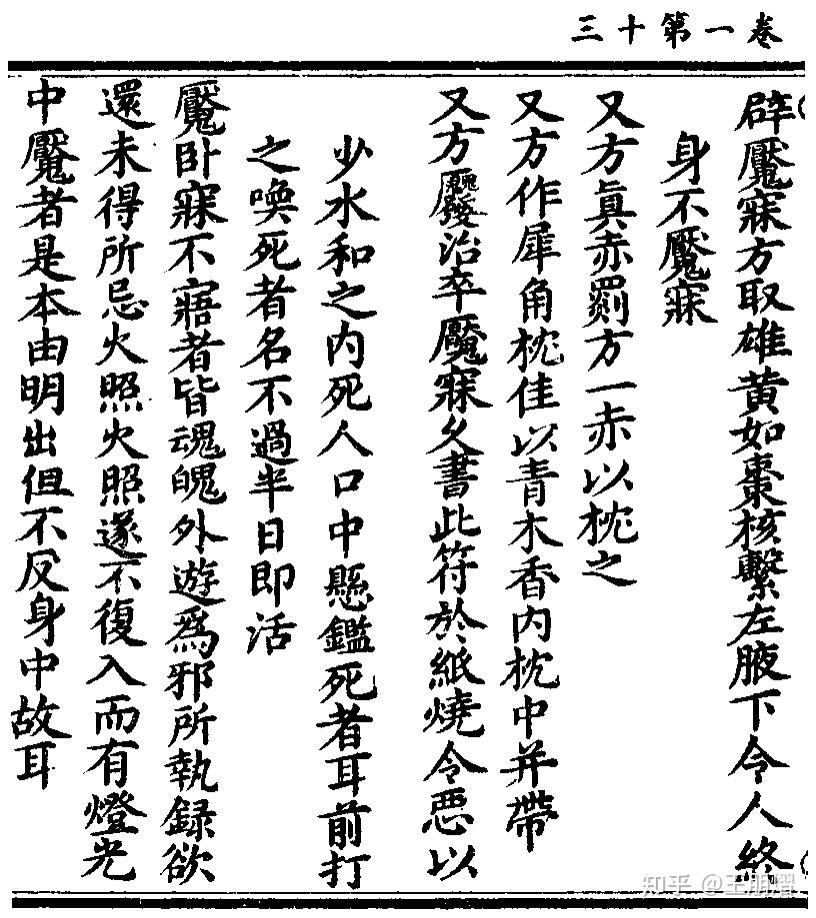 卷一第十三
辟魘寐方取雄黄如棗核繫左腋下令人終
身不魘寐
又方眞赤罽方一赤以枕之
又方作犀角枕佳以青木香内枕中并帶
又方治卒魘寐久書此符於紙燒令悪以
少水和之内死人口中懸鑑死者耳前打
之喚死者名不過半日即活
魘卧寐不寤者皆魂魄外遊爲邪所執録欲
還未得所忌火照火照遂不復入而有燈光
中魘者是本由明出但不反身中故耳
知乎 @王朋